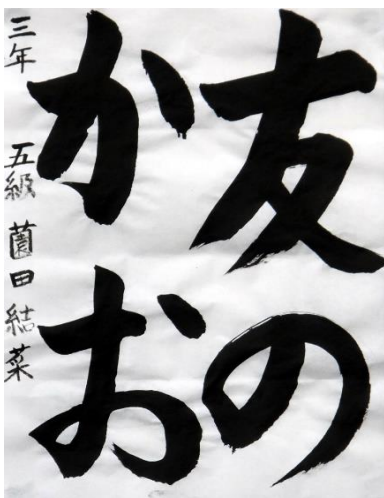 友の
かお
三年 五級 薗田結菜